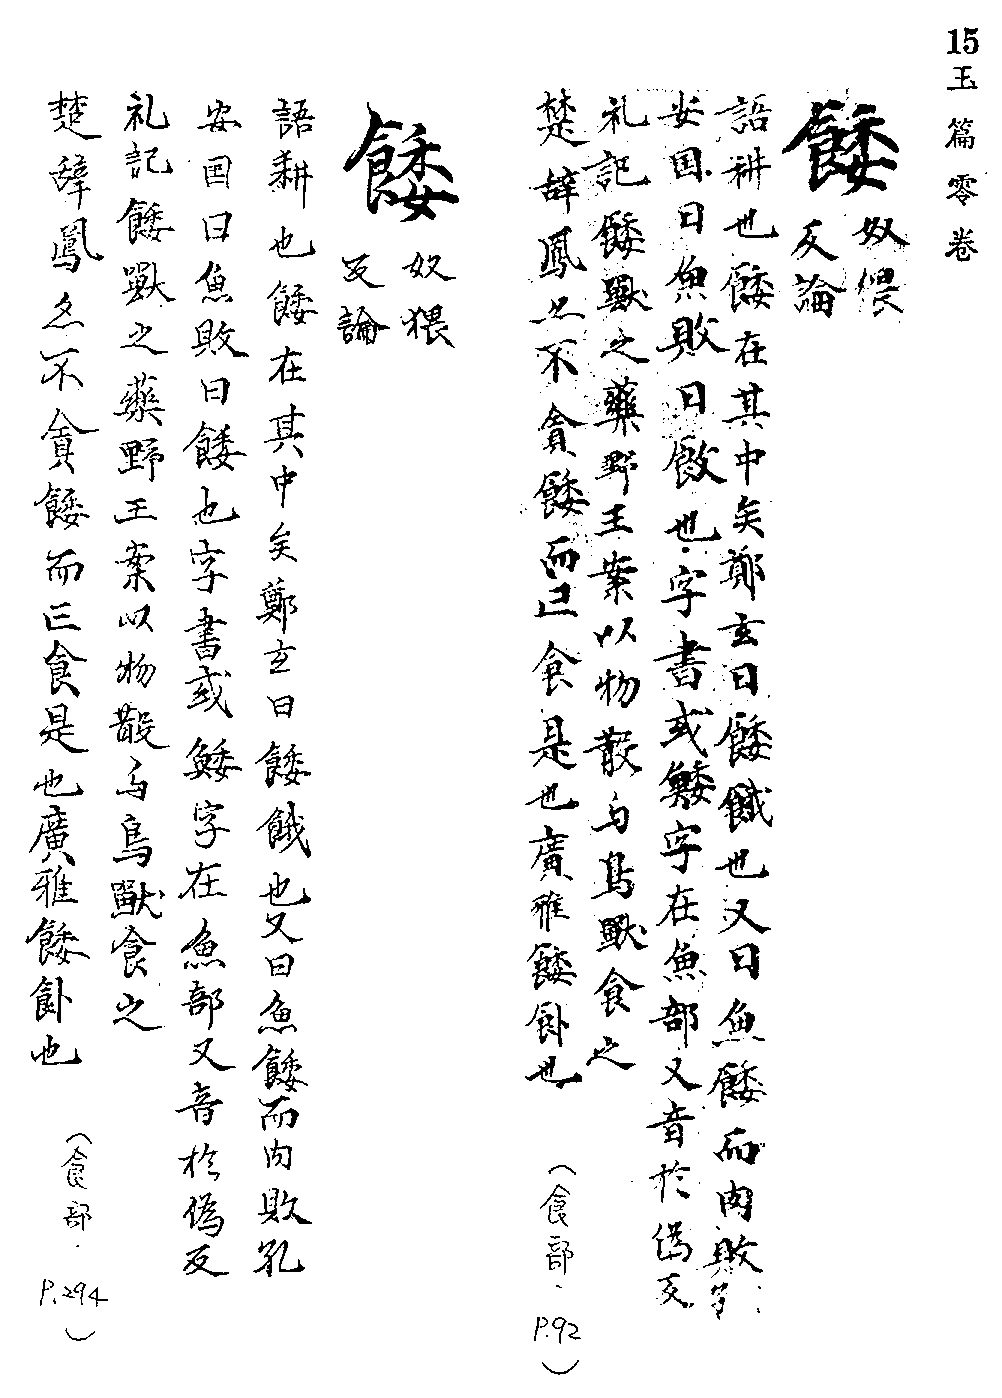 15玉篇零卷
餧
奴偎
反論
語耕也餧在其中矣鄭玄曰餧餓也又曰魚餧而肉敗
安国曰魚敗曰餧也字書或鯘字在魚部又音於偽反
礼記餧獸之藥野王案以物散与鳥獸食之
楚辞鳳亦不貪餧而忘食是也廣雅餧飤也
(食部.P.92)
餧
奴猥
反論
語耕也餧在其中矣鄭玄曰餧餓也又曰魚餧而肉敗孔
安国曰魚敗曰餧也字書或鯘字在魚部又音於偽反
礼記餧獸之藥野王案以物散与鳥獸食之
楚辞鳳亦不貪餧而忘食是也廣雅餧飤也
(食部.P.294)